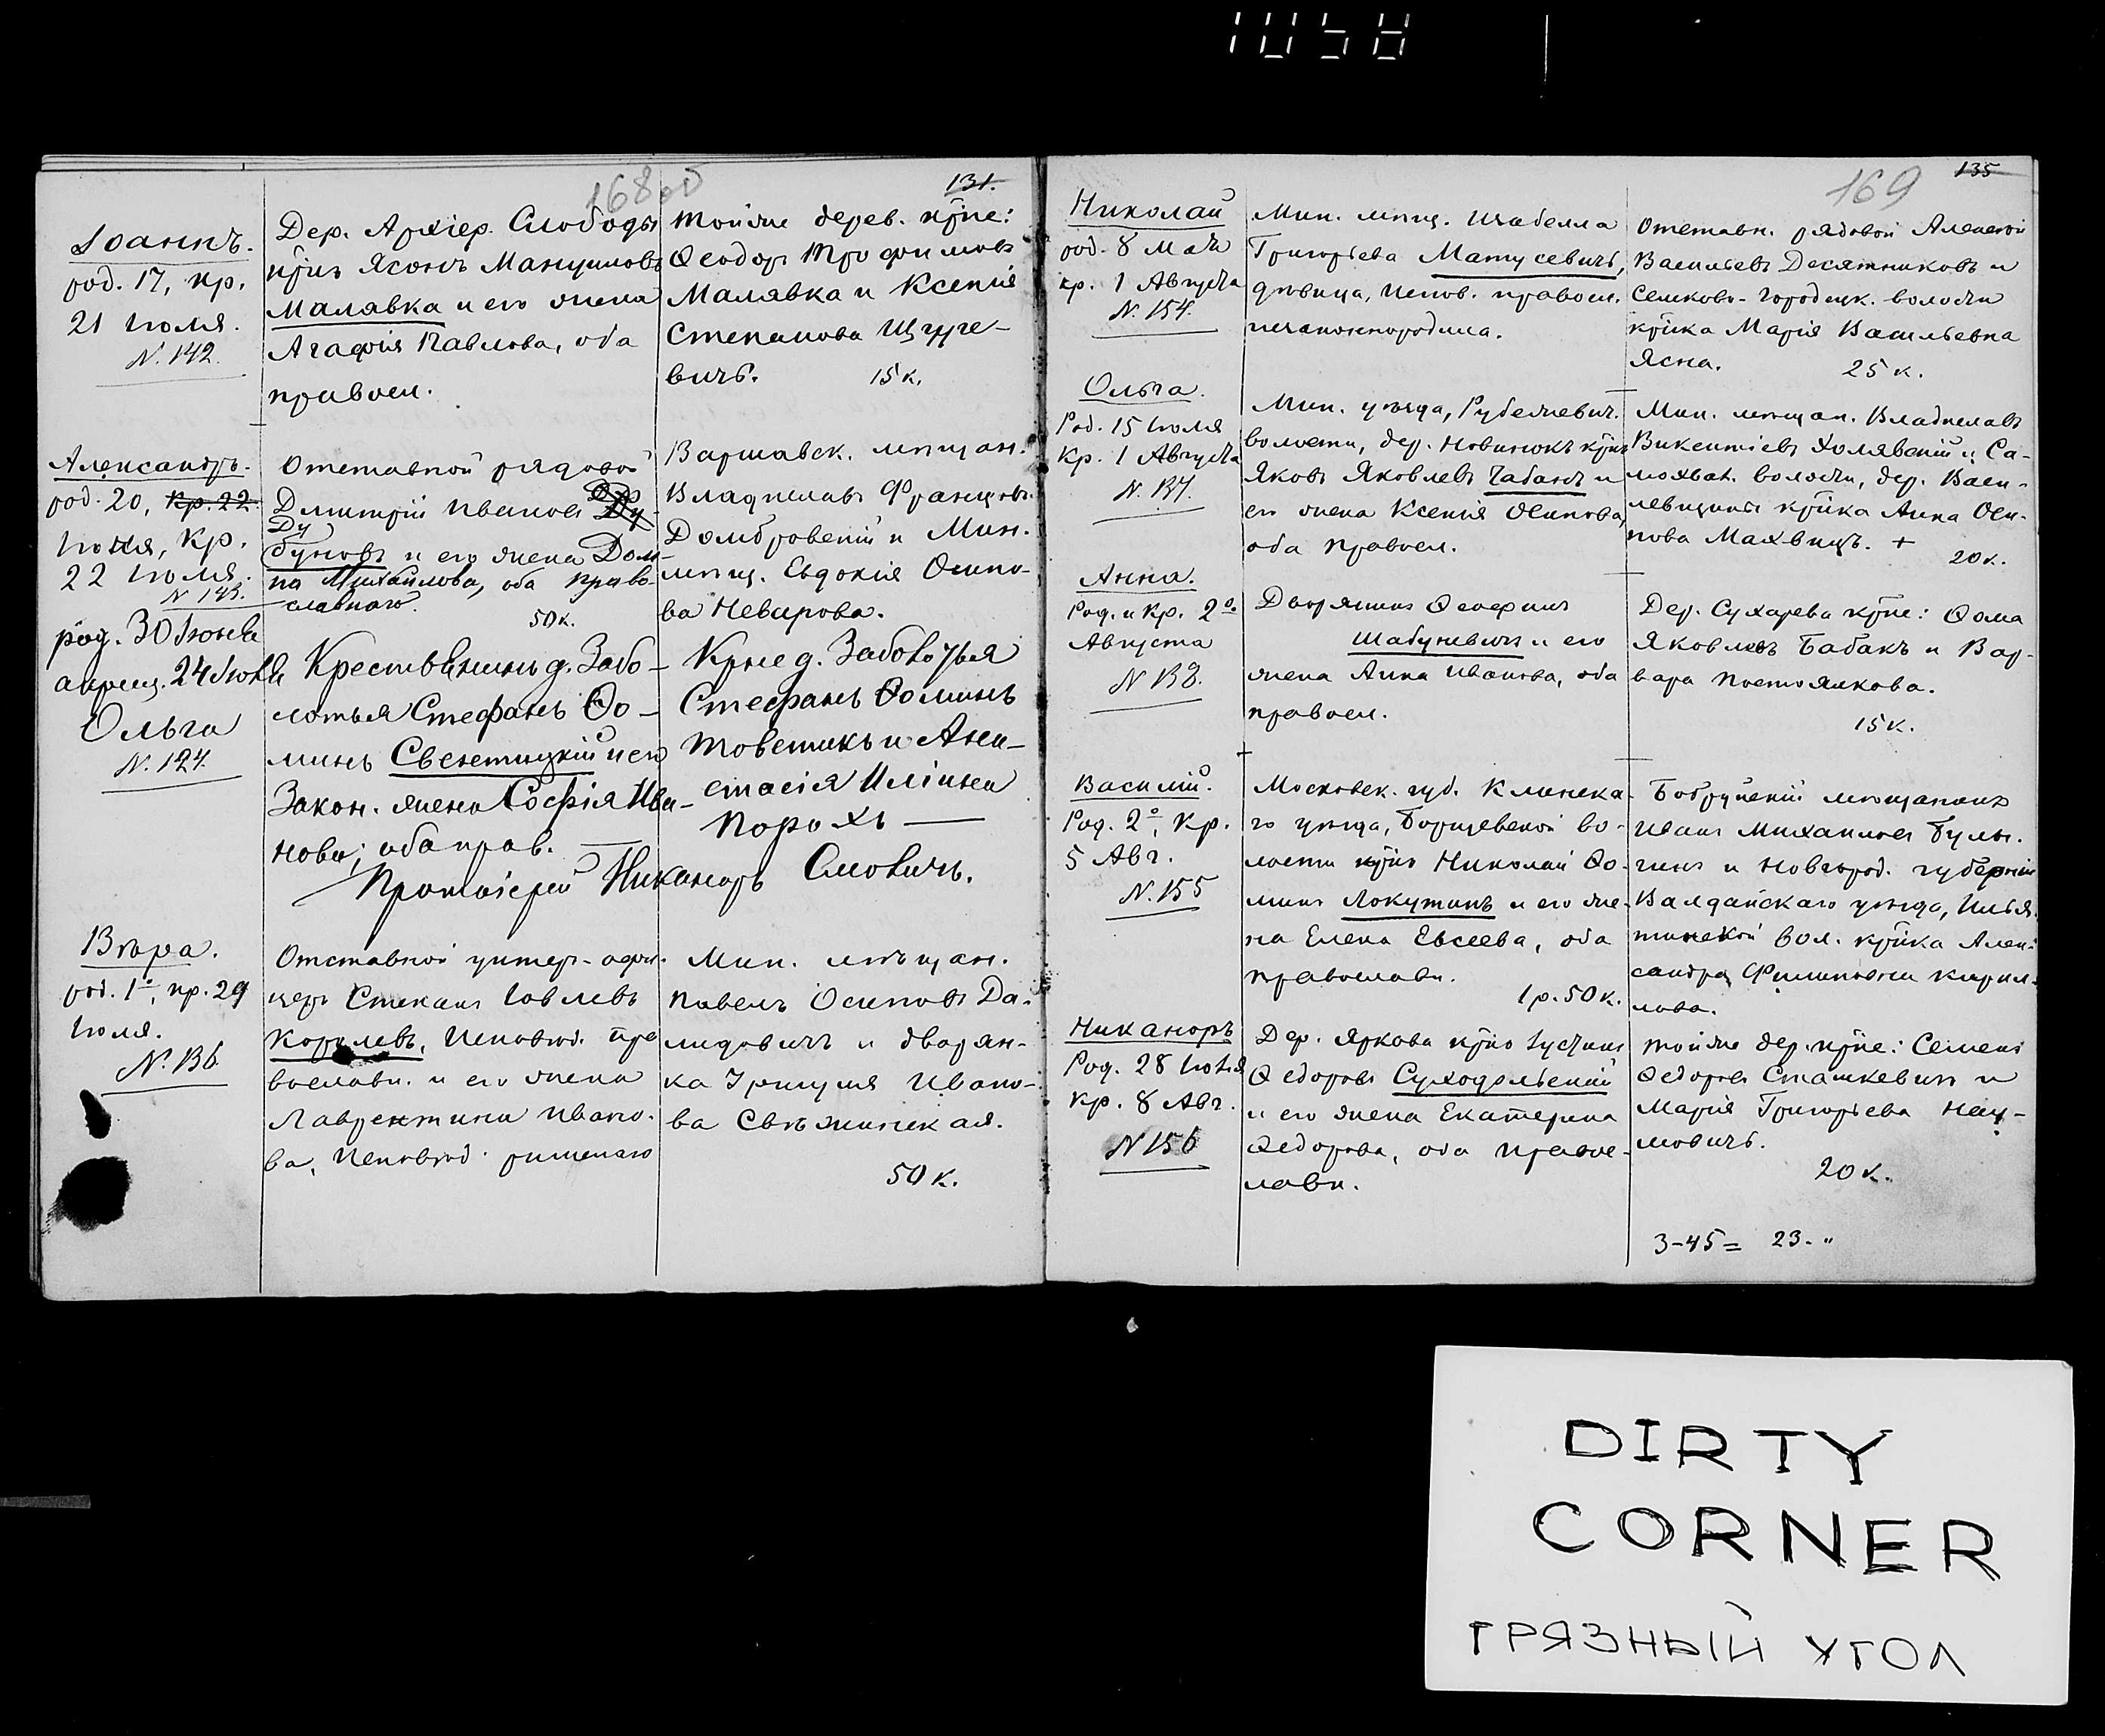 1058
168 об
131.
Іоаннъ.
род. 17, кр.
21 Іюля.
N. 142.
Дер. Архіер. Слободы
кр̃нъ Ясонъ Мануиловъ
Малявка и его жена
Агафія Павлова, оба
правосл.
тойже дерев. кр̃не:
Ѳеодоръ Трофимовъ
Малявка и Ксенія
Степанова
вичъ. 15 к.
Александръ.
род. 20, кр. 22
Іюля, кр.
22 Іюля.
N 143.
Отставной рядовой
Димитрій Ивановъ
Ду
буновъ и его жена Дом-
на Михайлова, оба право-
славнаго.
50 к.
Варшавск. мѣщан.
Владиславъ Францов.
Домбровскій и Мин.
мѣщ. Евдокія Осипо-
ва Неверова.
род. 30 Іюня
крещ. 24 Іюля
Ольга
N. 124.
Крестьянинъ д. Забо-
лотья Стефанъ Ѳо-
минъ Свентицкій и его
Закон. жена Софія Ива-
нова, оба прав.
Кр̃не д. Заболотья
Стефанъ Ѳоминъ
Товстикъ и Ана-
стасія Иліина
Порохъ
Протоіерей Никаноръ Смоличъ.
Вѣра.
род. 1º, кр. 29
Іюля.
N. 136.
Отставной унтер-офи-
церъ Степанъ Іовлевъ
Королевъ, Исповѣд. пра
вославн. и его жена
Лаврентина Ивано-
ва, Исповѣд. римскаго
Мин. мѣщан.
Павелъ Осиповъ Да-
лидовичъ и дворян-
ка Урщуля Ивано-
ва Свѣжинская.
50 к.
169
135
Николай
род. 8 Мая
кр. 1 Августа
N. 154.
Мин. мѣщ. Изабелла
Григорьева Матусевичъ,
дѣвица, Испов. правосл.
незаконнорожд.
Отставн. рядовой Алексѣй
Васильевъ Десятниковъ и
Семково-Городецк. волости
кр̃нка Марія Васильевна
Ясна.
25 к.
Ольга.
Род. 15 Іюля
Кр. 1 Августа
N. 137.
Мин. уѣзда, Рубежевич.
волости, дер. Новинокъ кр̃нъ
Яковъ Яковлевъ Чабанъ и
его жена Ксенія Осипова,
оба правосл.
Мин. мѣщан. Владиславъ
Викентіевъ Холявскій и Са-
мохвал. волости, дер. Васи-
левщины кр̃нка Анна Оси-
пова Махвицъ. +
20 к.
Анна.
Род. и Кр. 2º
Августа
N 138.
Дворянинъ
Шабуневичъ и его
жена Анна Иванова, оба
правосл.
Дер. Сухарева кр̃не: Ѳома
Яковлевъ Бабакъ и Вар-
вара Постоялкова.
15 к.
Василій.
Род. 2º, Кр.
5 Авг.
N. 155
Московск. губ. Клинска-
го уѣзда, Борщевской во-
лости кр̃нъ Николай Ѳо-
минъ Локутинъ и его же-
на Елена Евсеева, оба
православн.
1 р. 50 к.
Бобруйскій мѣщанинъ
Иванъ Михаиловъ Булы-
гинъ и Новгород. губерніи
Валдайскаго уѣзда, Ивья-
тинской вол. кр̃нка Алек-
сандра Филиппова Кирил-
лова.
Никаноръ
Род. 28 Іюля
Кр. 8 Авг.
N 156
Дер. Яркова кр̃нъ Іустинъ
Ѳедоровъ Суходольскій
и его жена Екатерина
Ѳедорова, оба правос-
лавн.
тойже дер. кр̃не: Семенъ
Ѳедоровъ Сташкевичъ и
Марія Григорьева Нау-
мовичъ.
20 к.
3-45 = 23- "
DIRTY
CORNER
ГРЯЗНЫЙ УГОЛ